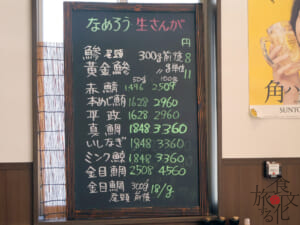 なめろう 生さんが
円
鯵 尾頭 300g前後 8
黄金鯵 〃
50g 100g
赤鯖 1496 2504
本めじ鮪 1628 2960
平政 1628 2960
真鯛 1848 3360
いしなぎ 1848 3360
ミンク鯨 1848 3360
金目鯛 2508 4560
金目鯛 300g前後 18/g
尾頭
角ハ
旅する食文化